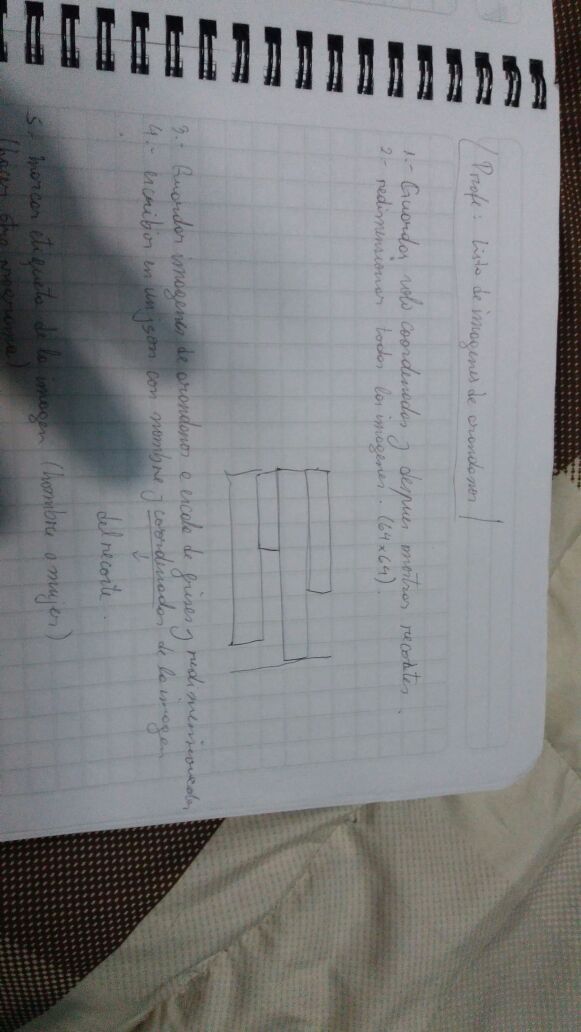 Profe: Lista de imagenes de arandanos
1.- Guardar solo coordenadas y despues mostrar recortes.
2.- redimensionar todas las imagenes. (64x64).
3.- Guardar imagenes de arandanos a escala de grises y redimensionadas
4.- escribir en un json con nombre y coordenadas de la imagen
del recorte.
5.- marcar etiqueta de la imagen (hombre o mujer)
(hacer otro programa)